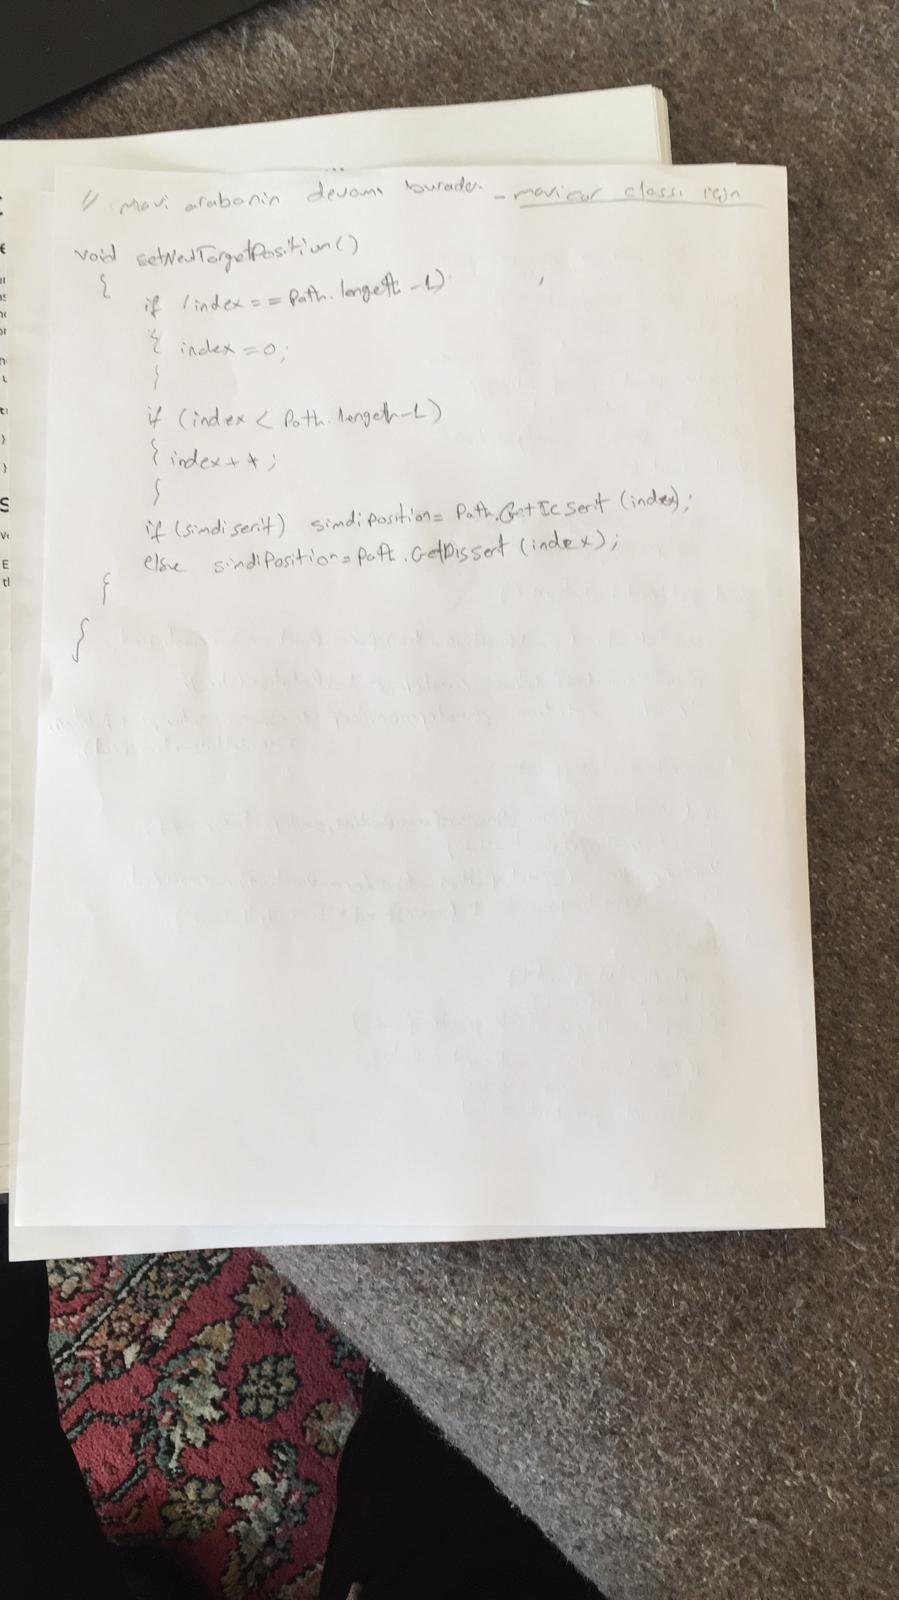 // Mavi arabanin devamı burada. - mavicar classı için
void setNewTargetPosition()
{
if (index == Path.lengeth -1)
{ index = 0;
}
if (index < Path.lengeth-1)
{ index++;
}
if (simdiserit) simdiPosition= Path.GetIcSerit (index);
else simdiPosition= Path.GetDisserit (index);
}
}